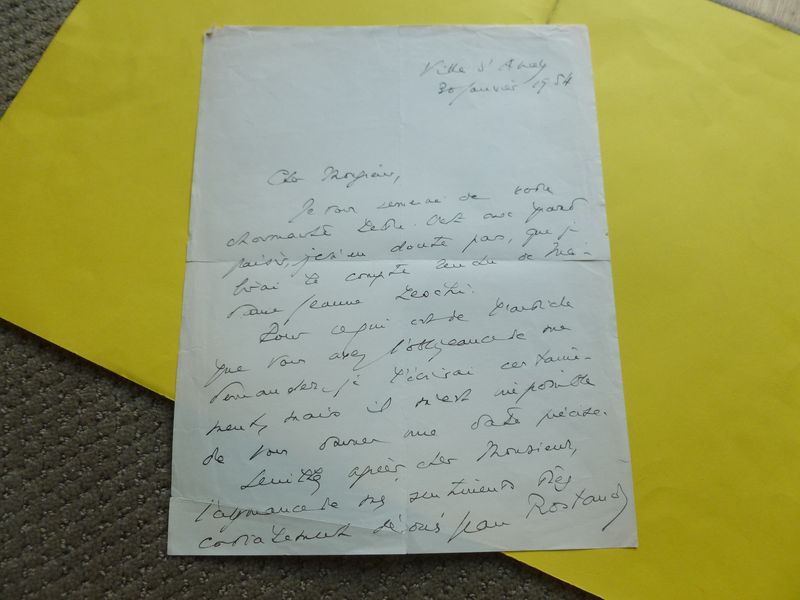 Ville d'Avray
30 janvier 1954
Cher Monsieur,
Je vous remercie de votre
charmante lettre. C'est avec grand
plaisir, je n'en doute pas, que je
lirai le compte rendu de Ma-
dame Jeanne
Pour ce qui est de l'article
que vous avez l'obligeance de me
demander, je l'écrirai certaine-
ment, mais il m'est impossible
de vous donner une date précise.
Veuillez agréer, cher Monsieur,
l'assurance de mes sentiments très
cordialement dévoués Jean Rostand